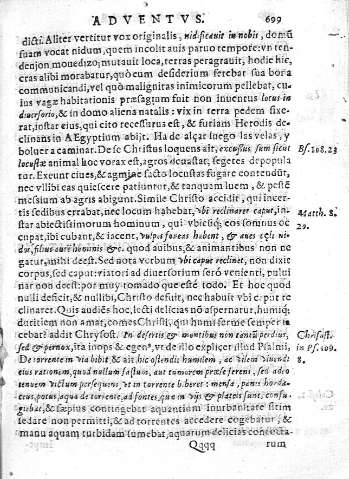 ADVENTVS. 699
dicti. Aliter vertitur vox originalis, nidificauit in nobis, domũ
suam vocat nidum, quem incolit auis paruo tempore: vn ten-
denjon mouedizo; mutauit loca, terras peragrauit, hodie hic,
cras alibi morabatur, quò cum desiderium ferebat sua bora
communicandi, vel quò malignitas inimicorum pellebat, cu-
ius vagæ habitationis præsagium fuit non inuentus locus in
diuersorio, & in domo aliena natalis: vix in terra pedem fixe-
rat, instar eius, qui cito recessurus est, & furiam Herodis de-
clinans in Aegyptium abijt. Ha de alçar luego las velas, y
boluer a caminar. De se Christus loquens ait, excussus sum sicut
locustæ animal hoc vorax est, agros deuastat, segetes depopula
tur. Exeunt ciues, & agmine facto locustas fugare contendũt,
nec vllibi eas quiescere patiuntur, & tanquam luem, & pestẽ
messium ab agris abigunt. Simile Christo accidit, qui incer-
tis sedibus errabat, nec locum habebat, vbi reclinaret caput, in-
star abiectissimorum hominum, qui vbicũq; eos somnus oc
cupat, ibi cubant, & iacent, vulpes foueas habent, & aues cœli ni-
dos, filius autẽ hominis &c. quod auibus, & animantibus non ne
gatur, mihi deest. Sed nota verbum vbi caput reclinet, non dixit
corpus, sed caput: viatori ad diuersorium serò venienti, pului
nar non deest: por muy tomado que estè todo. Et hoc quod
nulli deficit, & nullibi, Christo defuit, nec habuit vbi caput re
clinaret. Quis audiẽs hoc, lecti delicias nõ aspernatur, humiq;
duritiem non amat, comes Christi, qui humi ferme semper ia
cebat? addit Chrysost. In desertis & montibus non tantũ per diem,
sed & per nox, ita inops & egens, vt de illo explicet illud Psalmi,
De torrente in via bibit, & ait hic ostendis humilem, ac vilem viuendi
eius rationem, quod nullum fastum, aut tumorem præ se ferens, sed adeo
tenuem victum persequens, vt in torrente biberet: mensa, panis horda-
ceus, potus, aqua de torrente, ad fontes, quæ in vijs & plateis sunt, confu-
giebat, & sæpius contingebat aquantium inurbanitate sitim
sedare non permitti, & ad torrentes accedere cogebatur, &
manu aquam turbidam sumebat, aquarum delicias contecta-
Qqqq rum
Ps. 108. 23
Matth. 8.
20.
Chrisost.
in Ps. 109.
8.